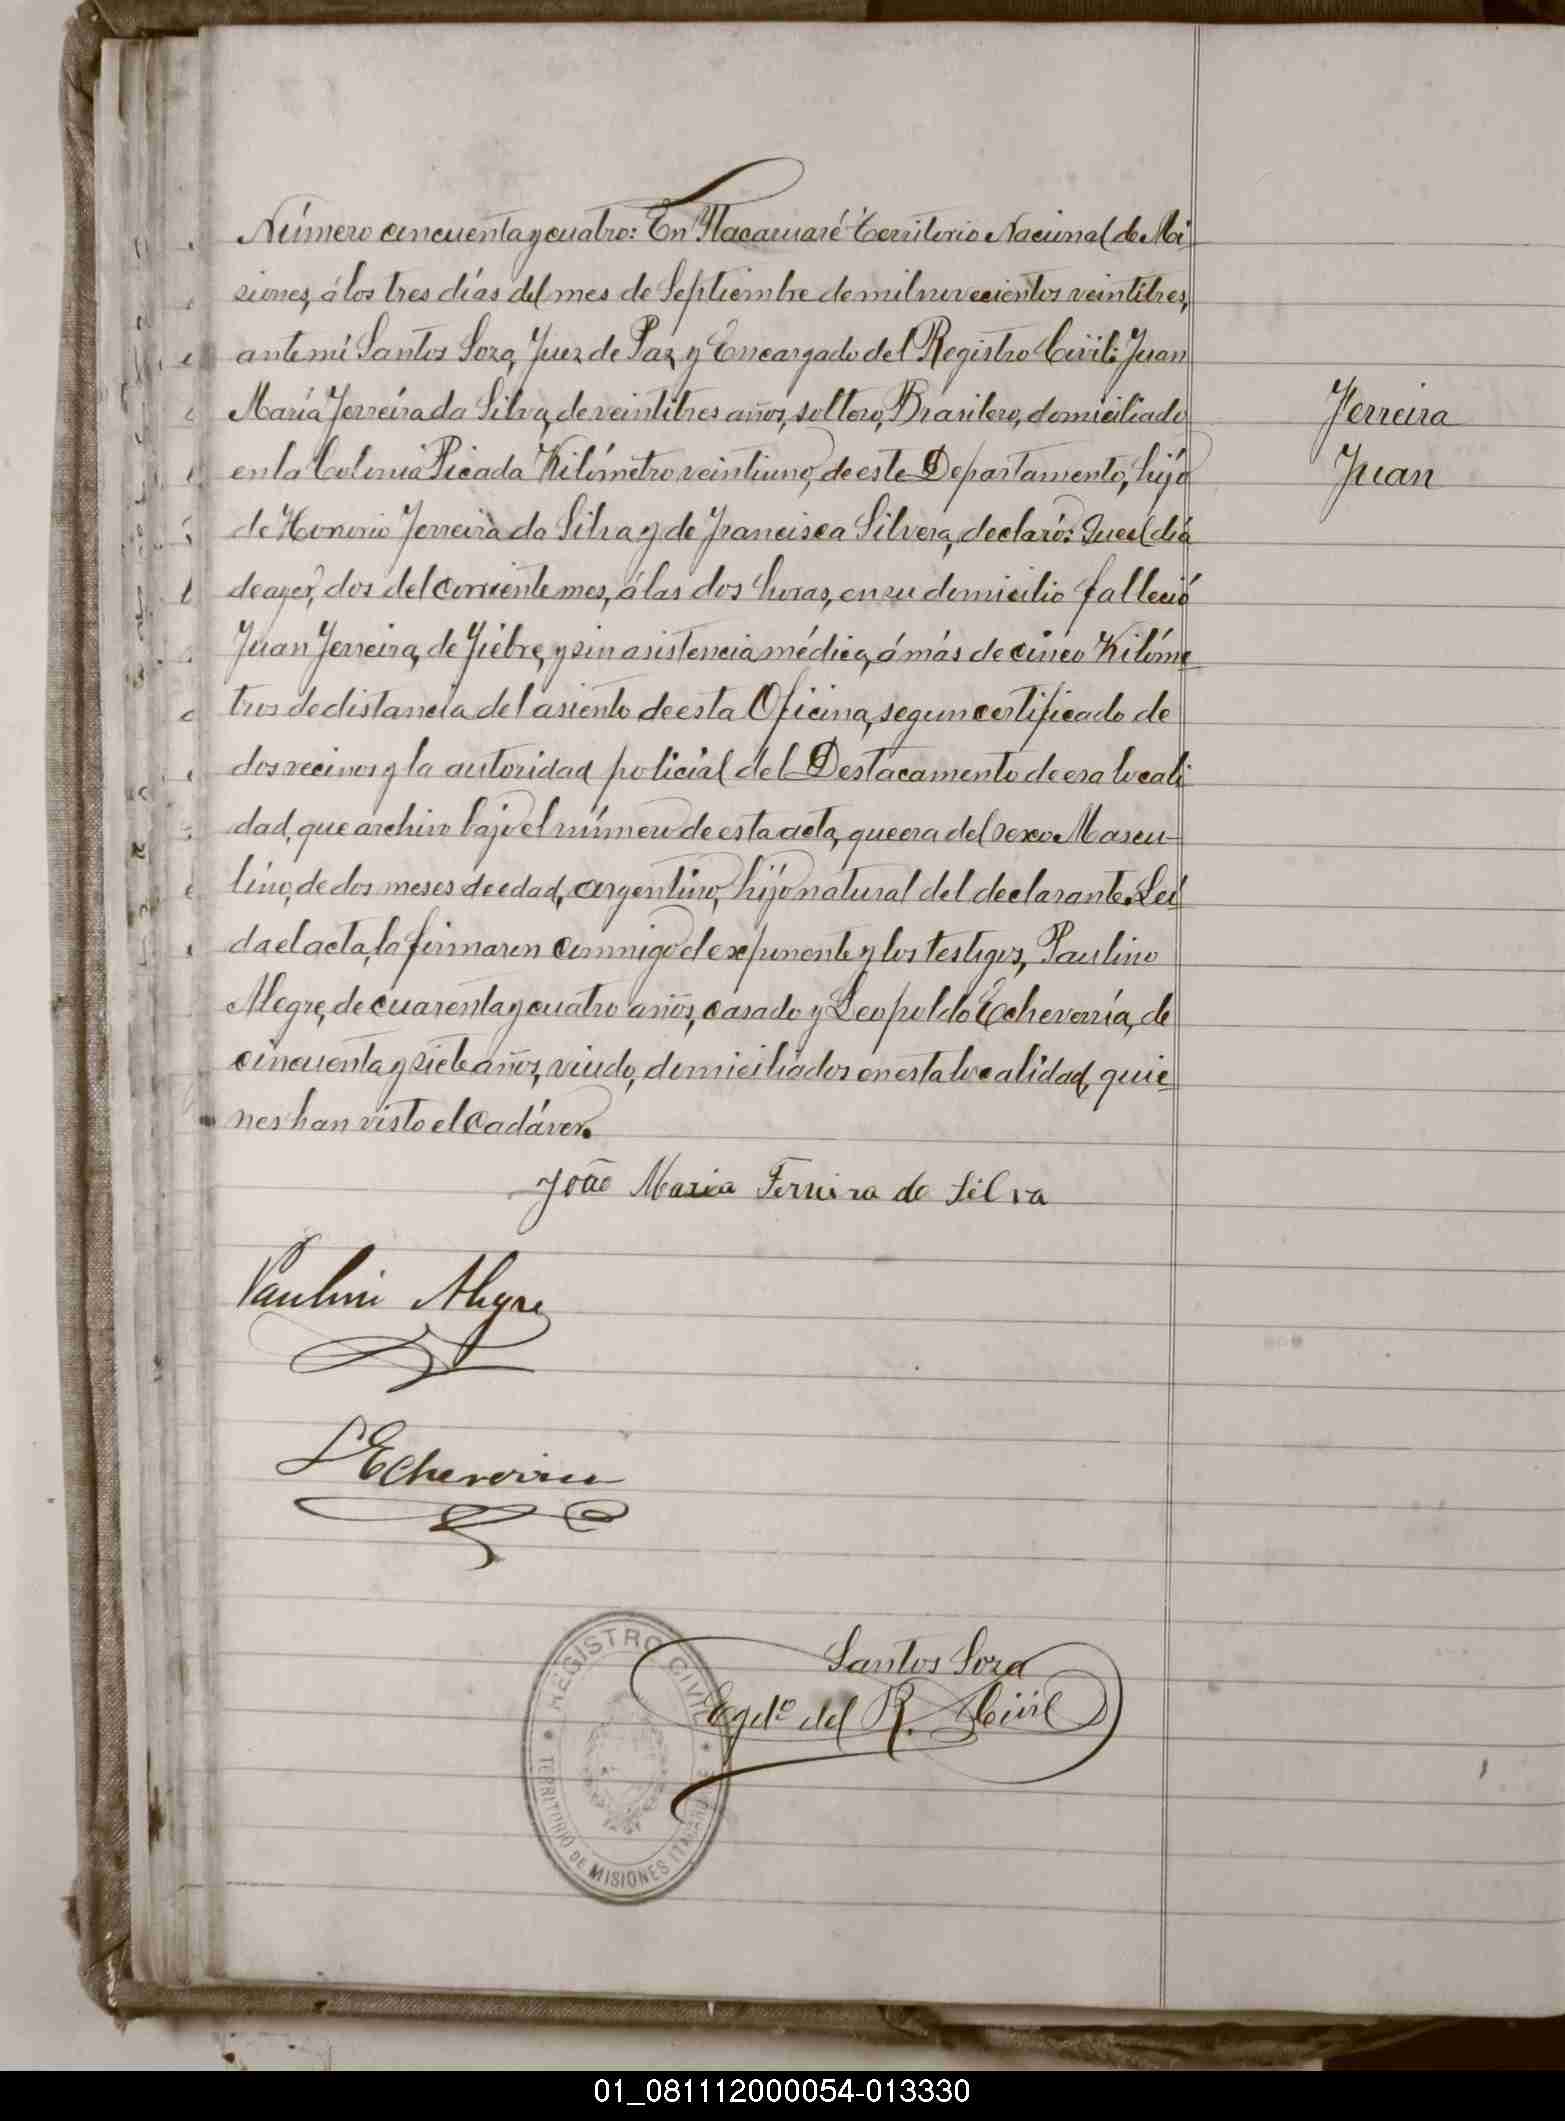 Número cincuenta y cuatro: En Ytacaruaré Territorio Nacional de Mi-
siones, á los tres días del mes de Septiembre de mil novecientos veintitres,
ante mí Santos Soza, Juez de Paz y Encargado del Registro Civil: Juan
María Ferreira da Silva, de veintitres años, soltero, Brasilero, domiciliado
en la Colonia Picada Kilómetro veintiuno, de este Departamento, hijo
de Honorio Ferreira da Silva y de Francisca Silvera, declaró: Que el día
de ayer, dos del corriente mes, á las dos horas, en su domicilio falleció
Juan Ferreira, de Fiebre, y sin asistencia médica, á más de cinco Kilóme-
tros de distancia del asiento de esta Oficina, segun certificado de
dos vecinos y la autoridad policial del Destacamento de esa locali-
dad, que archivo bajo el número de esta acta, que era del sexo Mascu-
lino, de dos meses de edad, argentino, hijo natural del declarante. Leí-
da el acta, la firmaron conmigo el exponente y los testigos, Paulino
Alegre, de cuarenta y cuatro años, casado y Leopoldo Echeverría, de
cincuenta y siete años, viudo, domiciliados en esta localidad, quie-
nes han visto el cadáver.
Ferreira
Juan
João Maria Ferreira da Silva
Paulino Alegre
L Echeverria
Santos Soza
Egdo del R. Civil
REGISTRO CIVIL
TERRITORIO DE MISIONES ITACARUARE
01_081112000054-013330